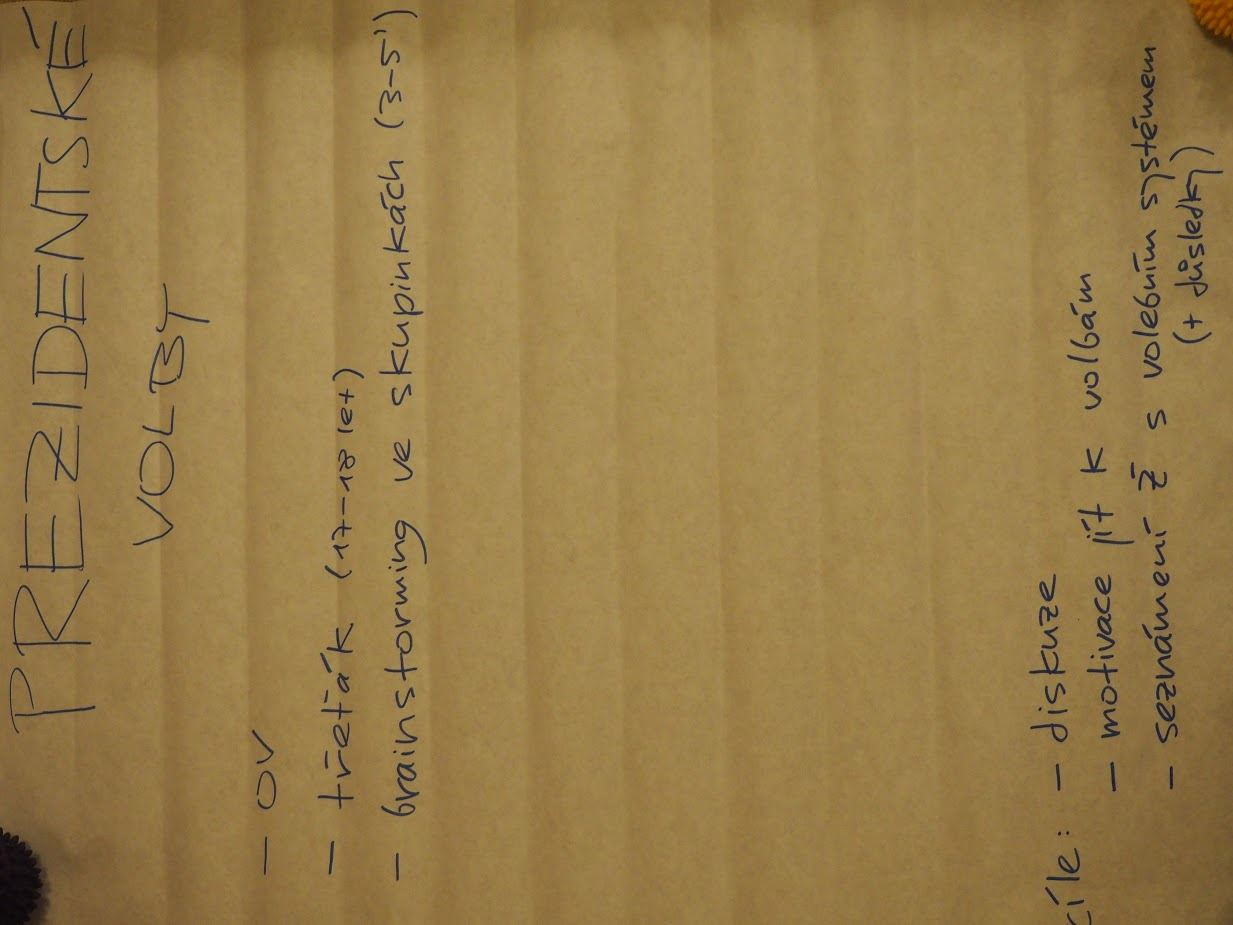 PREZIDENTSKÉ
VOLBY
- OV
- třeťák (17-18 let)
- brainstorming ve skupinkách (3-5')
cíle: - diskuze
- motivace jít k volbám
- seznámení ž s volebním systémem
(+ důsledky)